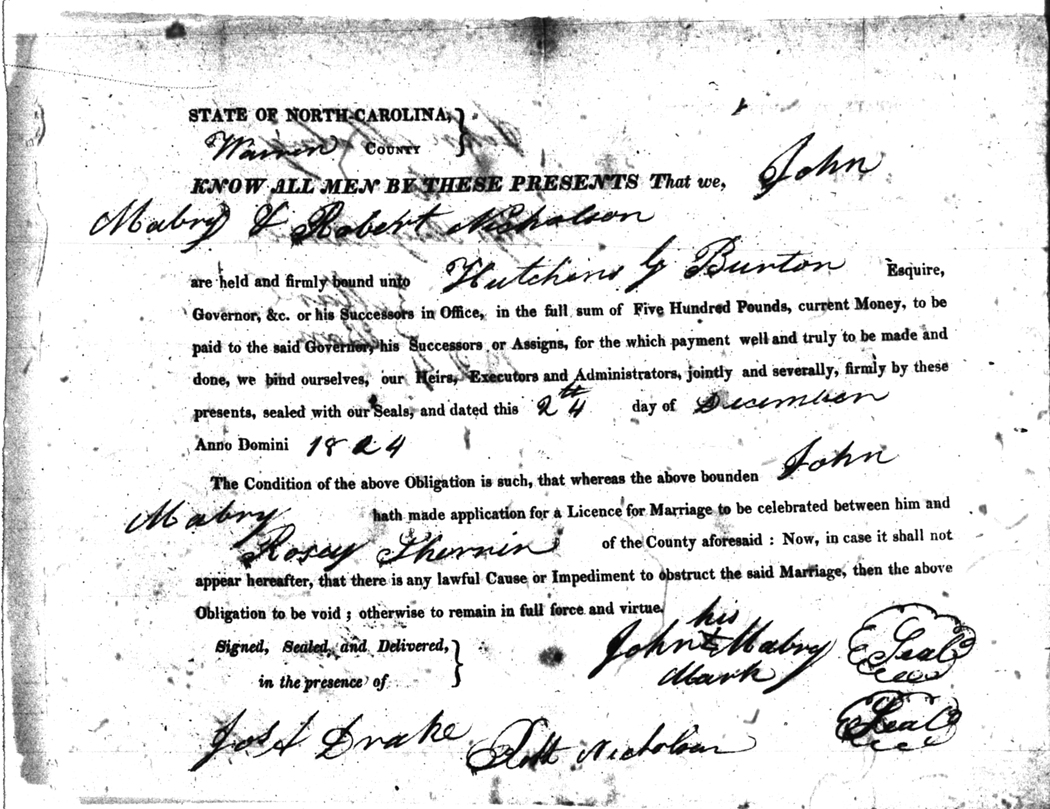 STATE OF NORTH-CAROLINA,
Warren COUNTY
KNOW ALL MEN BY THESE PRESENTS That we, John
Mabry & Robert Nicholson
are held and firmly bound unto Hutchins G Burton Esquire,
Governor, &c. or his Successors in Office, in the full sum of Five Hundred Pounds, current Money, to be
paid to the said Governor, his Successors or Assigns, for the which payment well and truly to be made and
done, we bind ourselves, our Heirs, Executors and Administrators, jointly and severally, firmly by these
presents, sealed with our Seals, and dated this 24th day of December
Anno Domini 1824
The Condition of the above Obligation is such, that whereas the above bounden John
Mabry hath made application for a Licence for Marriage to be celebrated between him and
Rosey Sherrin of the County aforesaid : Now, in case it shall not
appear hereafter, that there is any lawful Cause or Impediment to obstruct the said Marriage, then the above
Obligation to be void ; otherwise to remain in full force and virtue.
his
Signed, Sealed, and Delivered, John Mabry Seal
in the presence of Mark
Seal
Jos A Drake Robt Nicholson